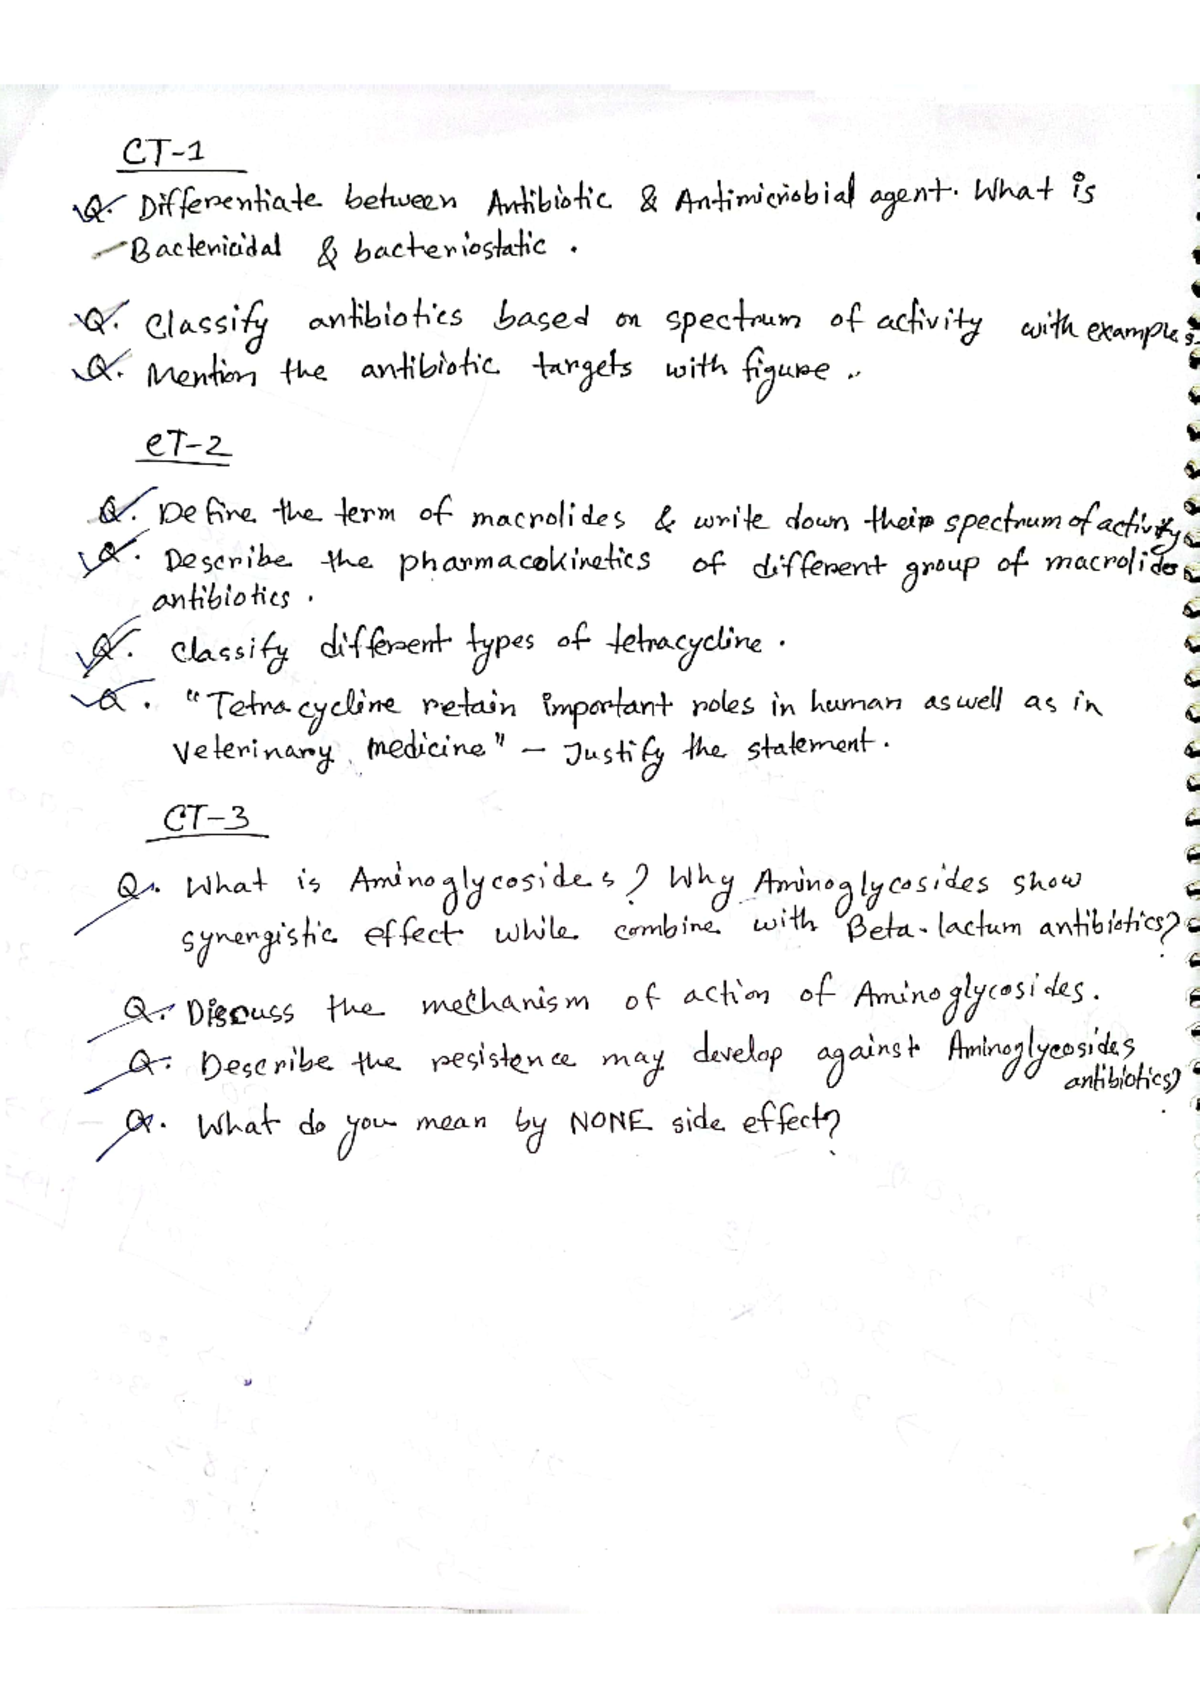 CT-1
Q. Differentiate between Antibiotic & Antimicrobial agent. What is
- Bactericidal & bacteriostatic.
Q. Classify antibiotics based on spectrum of activity with examples.
Q. Mention the antibiotic targets with figure..
CT-2
Q. Define the term of macrolides & write down their spectrum of activity
Q. Describe the pharmacokinetics of different group of macrolides
antibiotics.
Q. Classify different types of tetracycline.
Q. "Tetracycline retain important roles in human aswell as in
Veterinary medicine" - Justify the statement.
CT-3
Q. What is Aminoglycosides? Why Aminoglycosides show
synergistic effect while combine with Beta-lactum antibiotics?
Q. Discuss the mechanism of action of Aminoglycosides.
Q. Describe the resistence may develop against Aminoglycosides
antibiotics?
Q. What do you mean by NONE side effect?